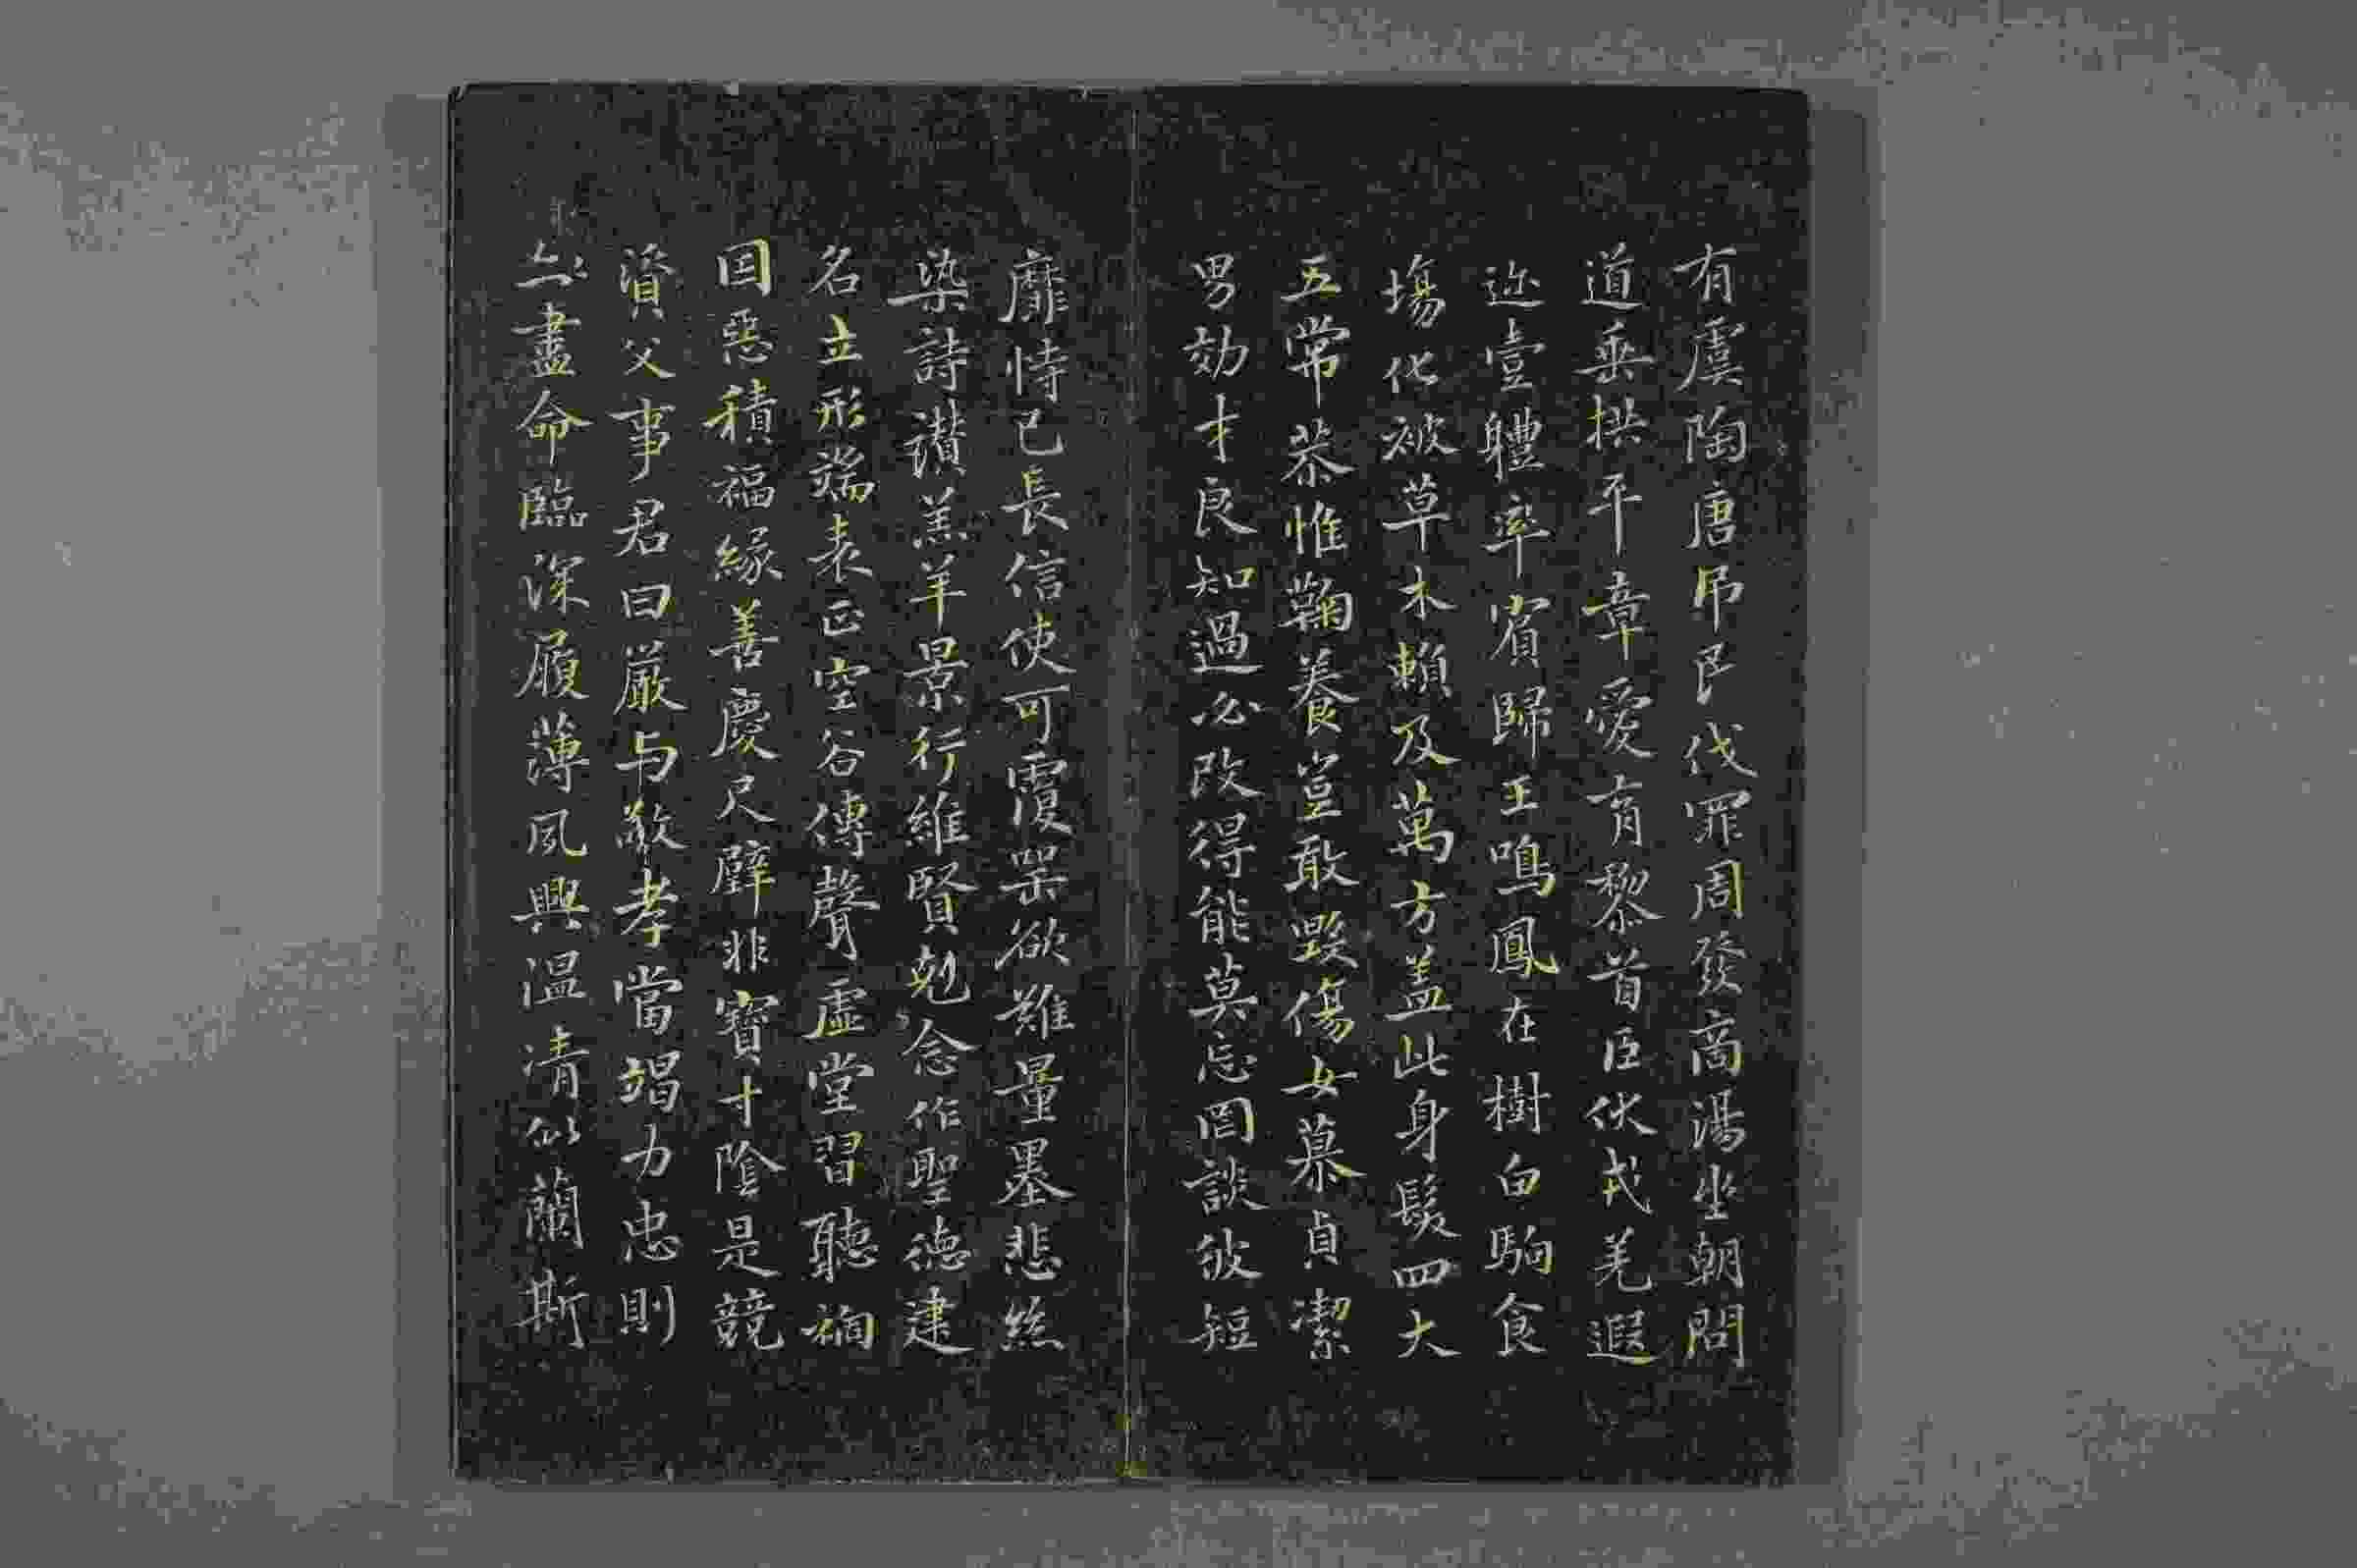 有虞陶唐吊民伐罪周發商湯坐朝問
道垂拱平章愛育黎首臣伏戎羌遐
迩壹體率賓歸王鳴鳳在樹白駒食
塲化被草木賴及萬方盖此身髮四大
五常恭惟鞠養豈敢毀傷女慕貞潔
男効才良知過必改得能莫忘罔談彼短
靡恃己長信使可覆器欲難量墨悲絲
染詩讃羔羊景行維賢剋念作聖德建
名立形端表正空谷傳聲虛堂習聽禍
因惡積福緣善慶尺璧非寶寸陰是競
資父事君曰嚴与敬孝當竭力忠則
盡命臨深履薄夙興温凊似蘭斯